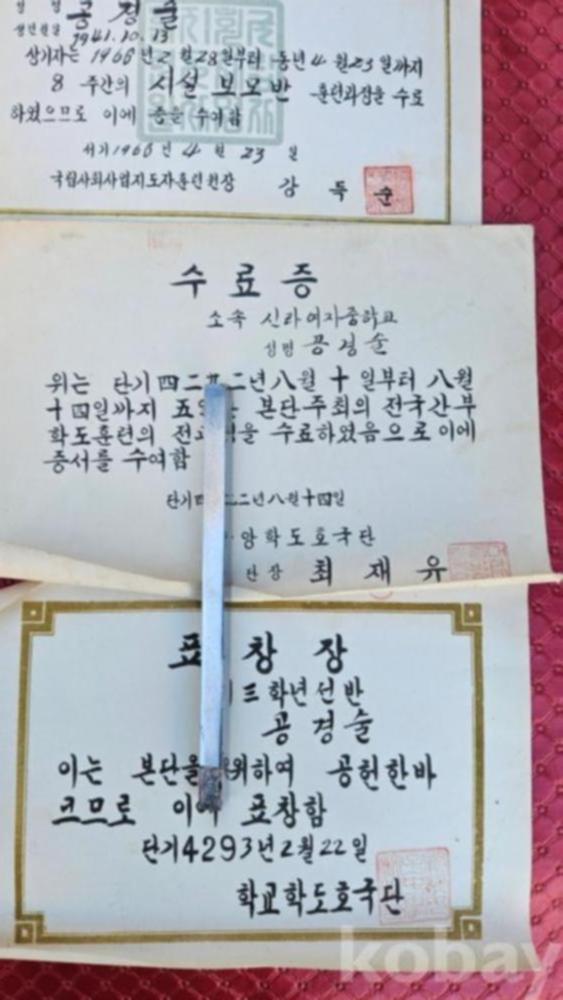 성명 공경술
생년월일 1941.10.13
상기자는 1966년 2월 28일부터 동년 4월 23일까지
8 주간의 시설 보모반 훈련과정을 수료
하였으므로 이에 증을 수여함
서기 1966년 4월 23일
국립사회사업지도자훈련원장 강 득 순
수료증
소속 신라여자중학교
성명 공경술
위는 단기四二九二년八월十일부터 八월
十四일까지 五 본단주최의 전국간부
학도훈련의 을 수료하였음으로 이에
증서를 수여함
단기四 二년八월十四일
앙학도호국단
단장 최재유
표창장
三학년 선반
공경술
이는 본단을 위하여 공헌한바
크므로 이에 표창함
단기4293년2월22일
학교학도호국단
kobay